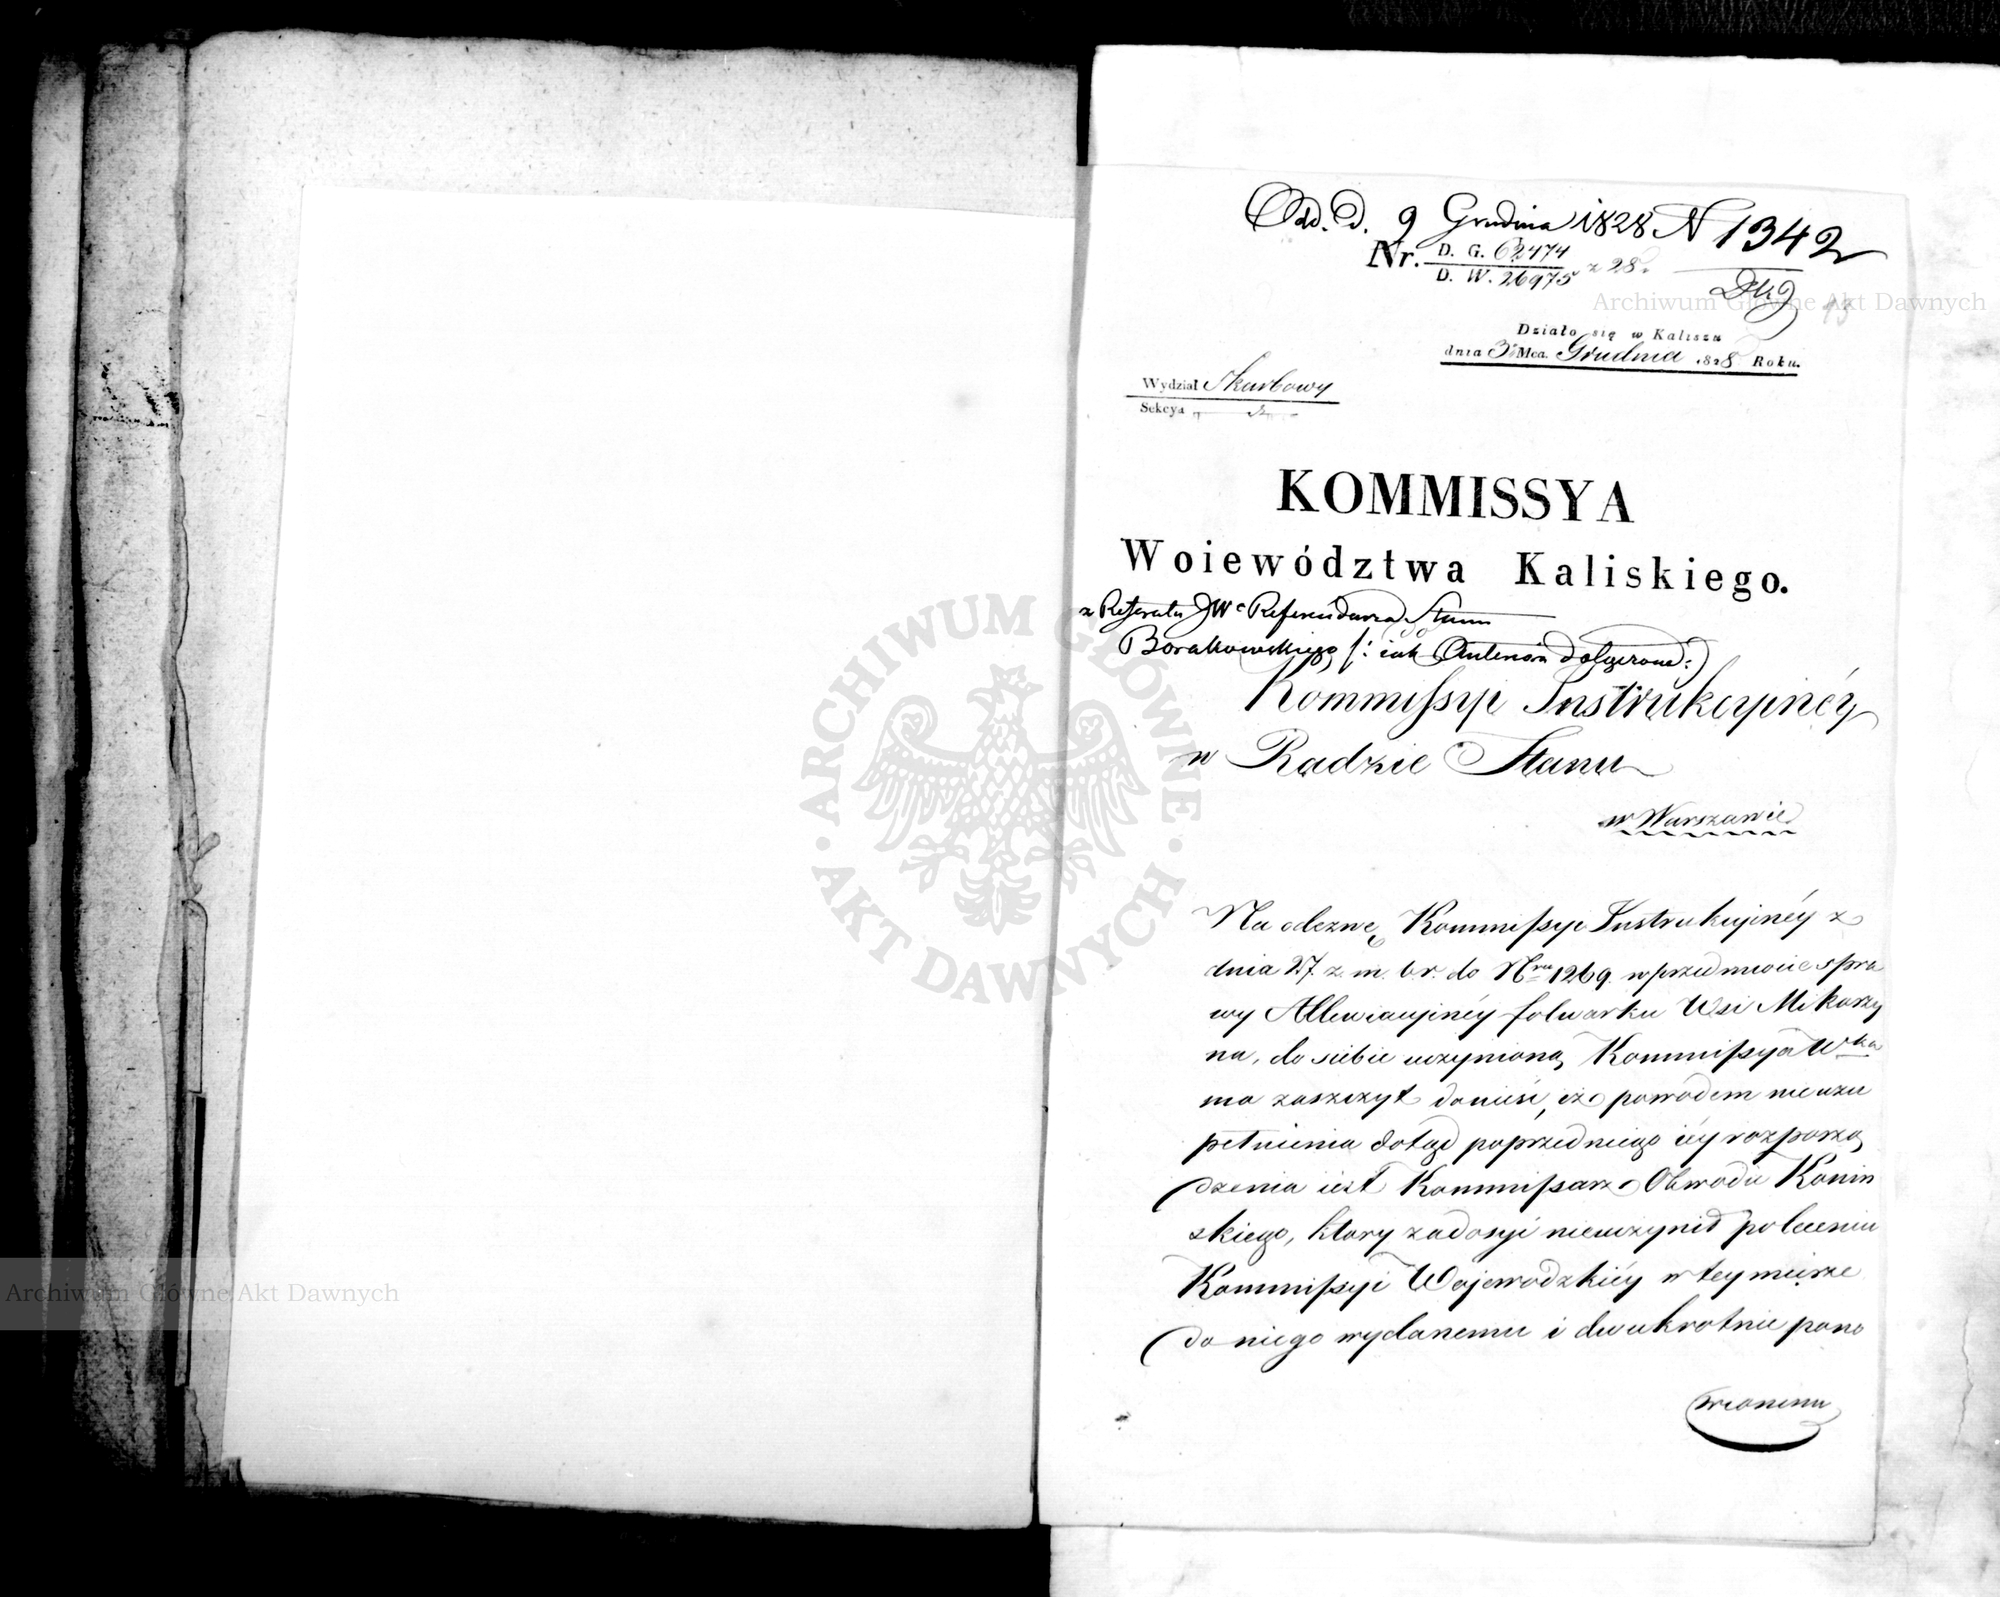 Odd. D. 9 Grudnia 1828 N 1342
Nr. D. G. 62474
D. W. 26975 z 28.
Działo się w Kaliszu
dnia 3 Mca. Grudnia 1828 Roku.
Wydział Skarbowy
Sekcya
KOMMISSYA
Woiewództwa Kaliskiego.
z Referatu JWo Referendarza Stanu
Borakowskiego /: iak
Kommissyi Instrukcyinéy
w Radzie Stanu
w Warszawie
Na odezwę Kommissyi Instrukcyinéy z
dnia 27. z. m. b r. do Nru 1269. w przedmiocie spra
wy Allewiacyinéy folwarku Wsi Mikorzy
na, do siebie uczynioną Kommissya Wka
ma zaszczyt donieść, iż powodem nieuzu
pełnienia dotąd poprzedniego iéy rozporzą
dzenia iest Kommissarz Obwodu Konin
skiego, ktory zadosyć nieuczynił poleceniu
Kommissyi Wojewodzkiéy w tey mierze
do niego wydanemu i dwukrotnie pono
wionemu
Archiwum Główne Akt Dawnych
Archiwum Główne Akt Dawnych
ARCHIWUM GŁÓWNE AKT DAWNYCH